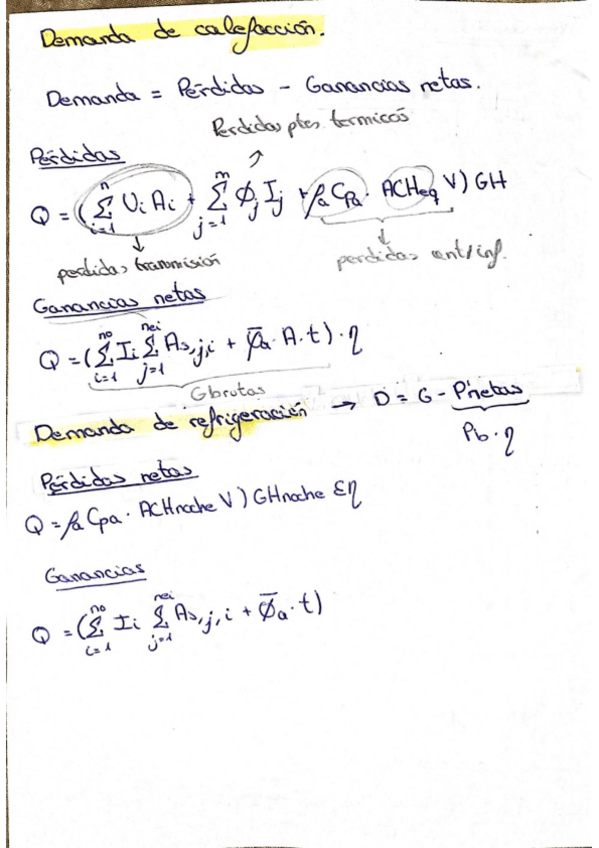 Demanda de calefacción.
Demanda = Pérdidas - Ganancias netas.
Perdidas ptes. termicos
Pérdidas
Q = (∑_{i=1}^{n} Ui Ai + ∑_{j=1}^{m} Φj Ij + ρa Cpa · ACHeq V) GH
perdidas transmisión
perdidas vent/inf.
Ganancias netas
Q = (∑_{i=1}^{no} Ii ∑_{j=1}^{nei} As,j,i + Φ̅a · A · t) · η
Gbrutas
Demanda de refrigeración → D = G - Pnetas
Pb · η
Pérdidas netas
Q = ρa Cpa · ACHnoche V) GHnoche Eη
Ganancias
Q = (∑_{i=1}^{no} Ii ∑_{j=1}^{nei} As,j,i + Φ̅a · t)